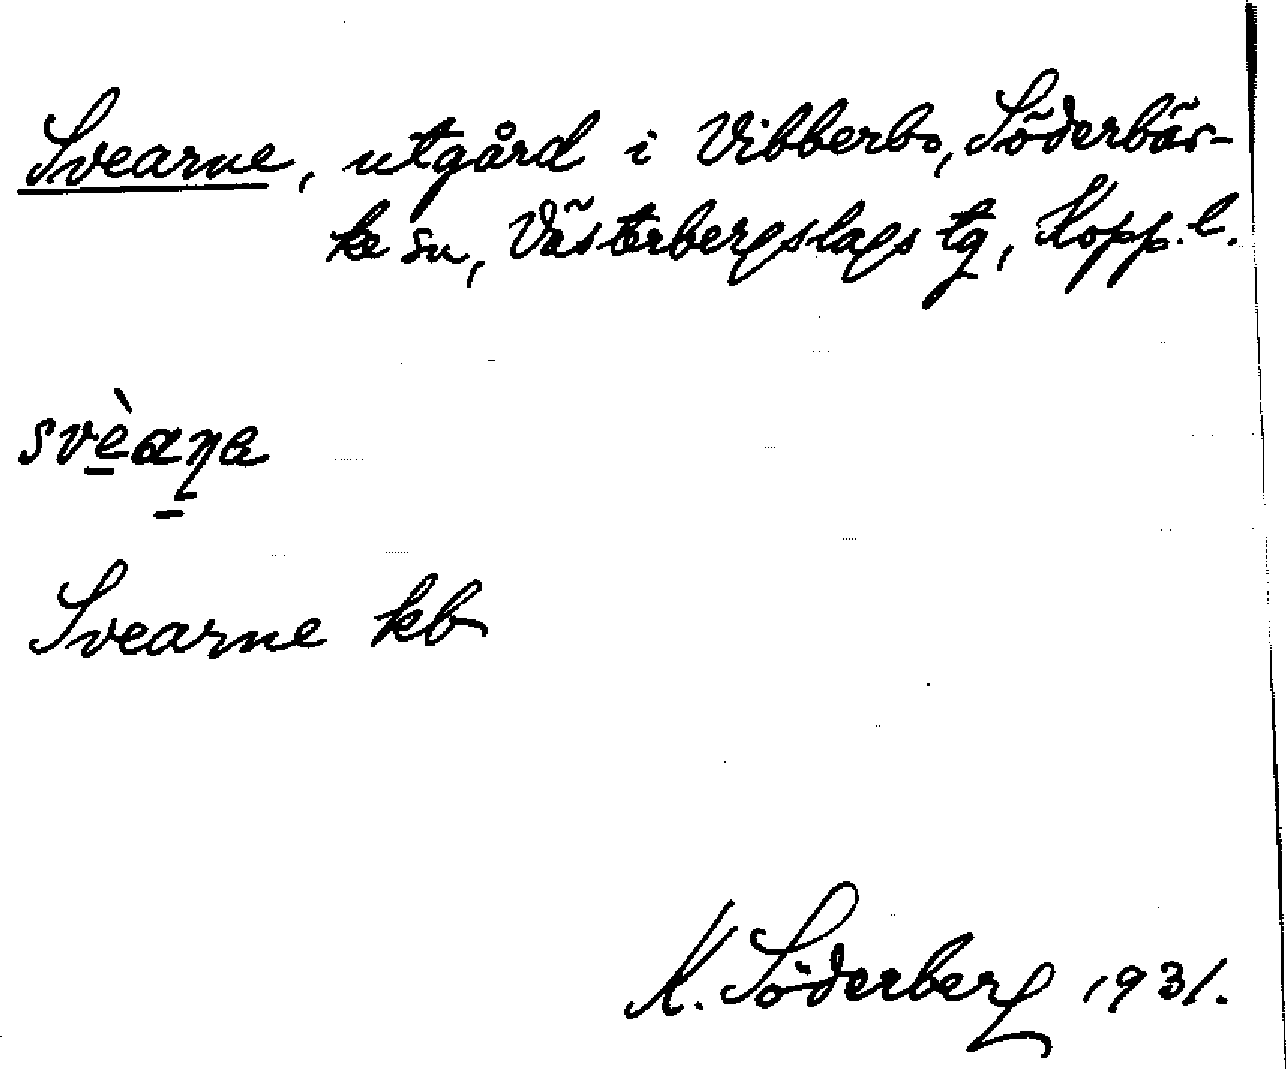 Svearne, utgård i Vibberbo, Söderbär-
ke sn, Västerbergslags tg, Kopp. l.
svèaṇa
Svearne kb
K. Söderberg 1931.